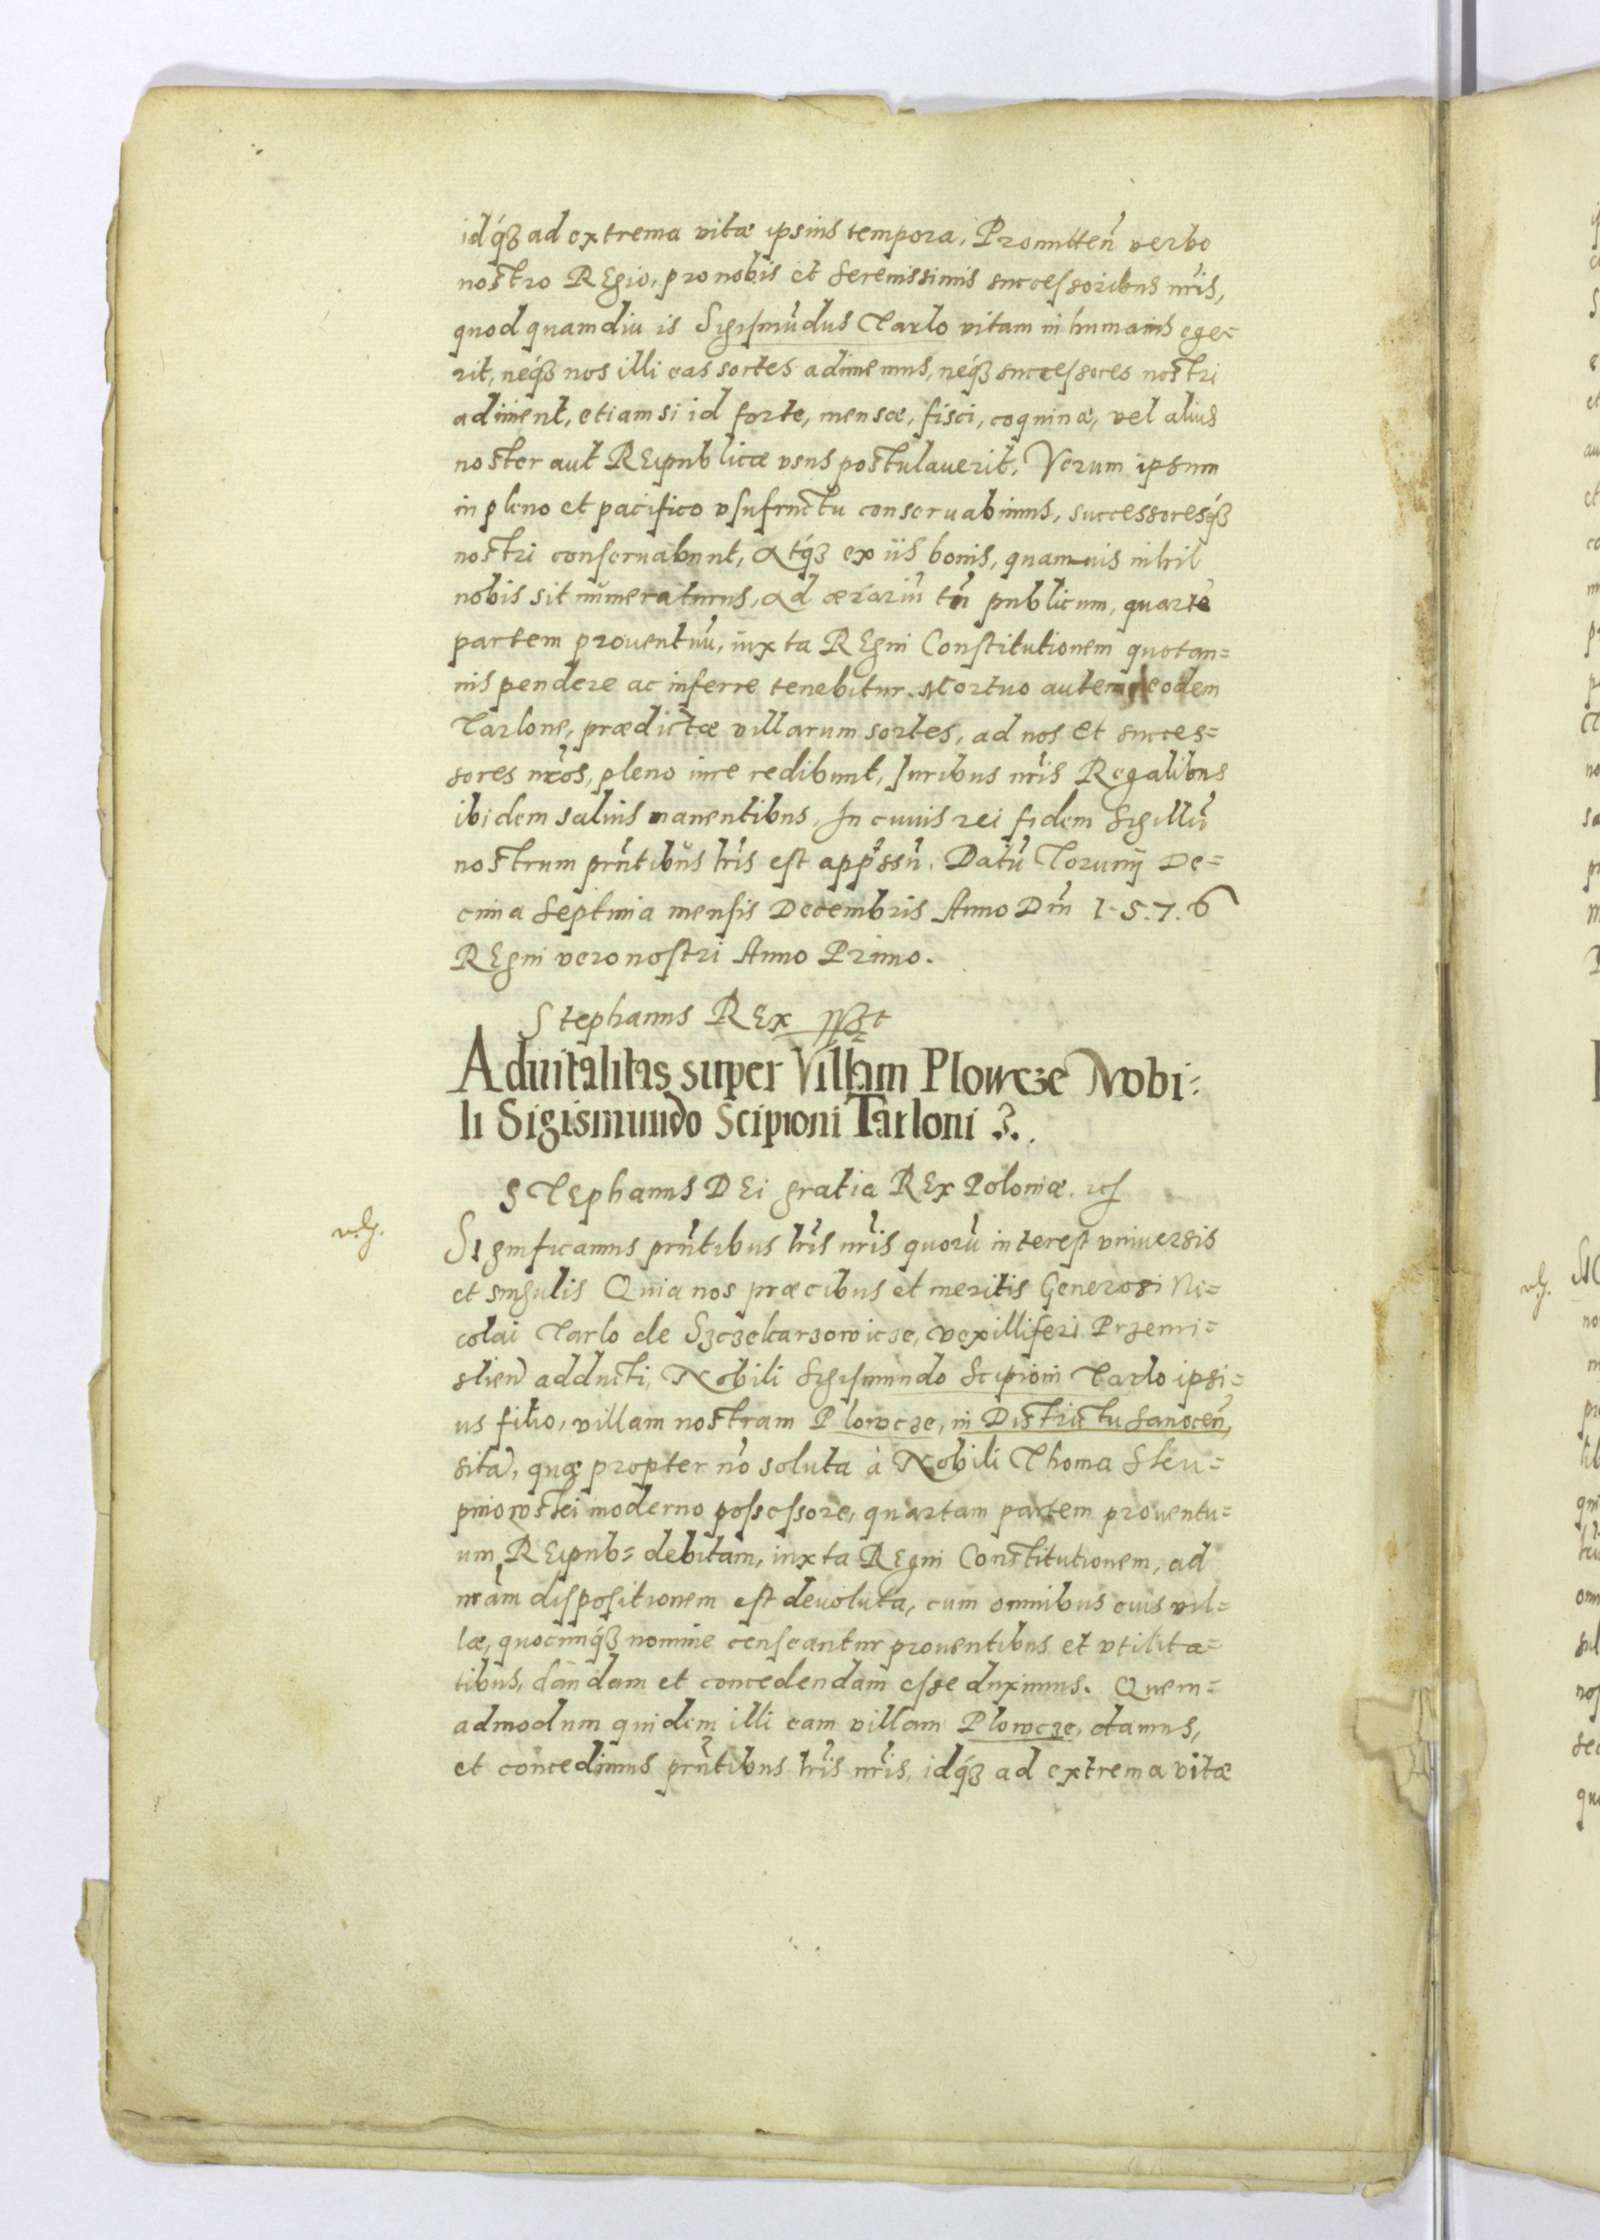 idq́ꝫ ad extrema vitæ ipsius tempora, Promitteñ verbo
nostro REgio, pro nobis et Serenissimis successoribus nr̃is,
quod quamdiu is Sigismũdus Tarlo vitam in humanis ege=
rit, neq́ꝫ nos illi eas sortes adimemus, neq́ꝫ successores nostri
adiment, etiam si id forte, mensæ, fisci, coquinæ, vel alius
noster aut REipublicæ vsus postulauerit, Verum ipsum
in pleno et pacifico vsufructu conseruabimus, successoresq́ꝫ
nostri conseruabunt, Atq́ꝫ ex iis bonis, quamuis nihil
nobis sit numeraturus, Ad ærariũ tñ publicum, quartã
partem prouentuũ, iuxta REgni Constitutionem quotan=
nis pendere ac inferre tenebitur. Mortuo autem eodem
Tarlone, prædictæ villarum sortes, ad nos et succes=
sores nr̃os, pleno iure redibunt, Iuribus nr̃is Regalibus
ibidem saluis manentibus, In cuius rei fidem Sigillũ
nostrum pr̃ntibus lr̃is est appssũ. Datũ Torunij De=
cima Septima mensis Decembris Anno Dñi 1.5.7.6
REgni vero nostri Anno Primo.
Stephanus REx
Aduitalitas super Villam Plowcze Nobi=
li Sigismundo Scipioni Tarloni
STEphanus DEi gratia REx Poloniæ.
Significamus pr̃ntibus lr̃is nr̃is quorũ interest vniuersis
et singulis Quia nos præcibus et meritis Generosi Ni=
colai Tarlo de Sczekarzowicze, vexilliferi Przemi=
slieñ adducti, Nobili Sigismundo Scipioni Tarlo ipsi=
us filio, villam nostram Plowcze, in Districtu Sanoceñ,
sitã, quæ propter nõ soluta à Nobili Thoma
moderno possessore, quartam partem prouentu=
um REipub= debitam, iuxta REgni Constitutionem, ad
nr̃am dispositionem est deuoluta, cum omnibus euis vil=
læ, quocunq́ꝫ nomine censeantur prouentibus et vtilita=
tibus, dandam et concedendam esse duximus. Quem=
admodum quidem illi eam villam Plowcze, damus,
et concedimus pr̃ntibus lr̃is nr̃is, idq́ꝫ ad extrema vitæ